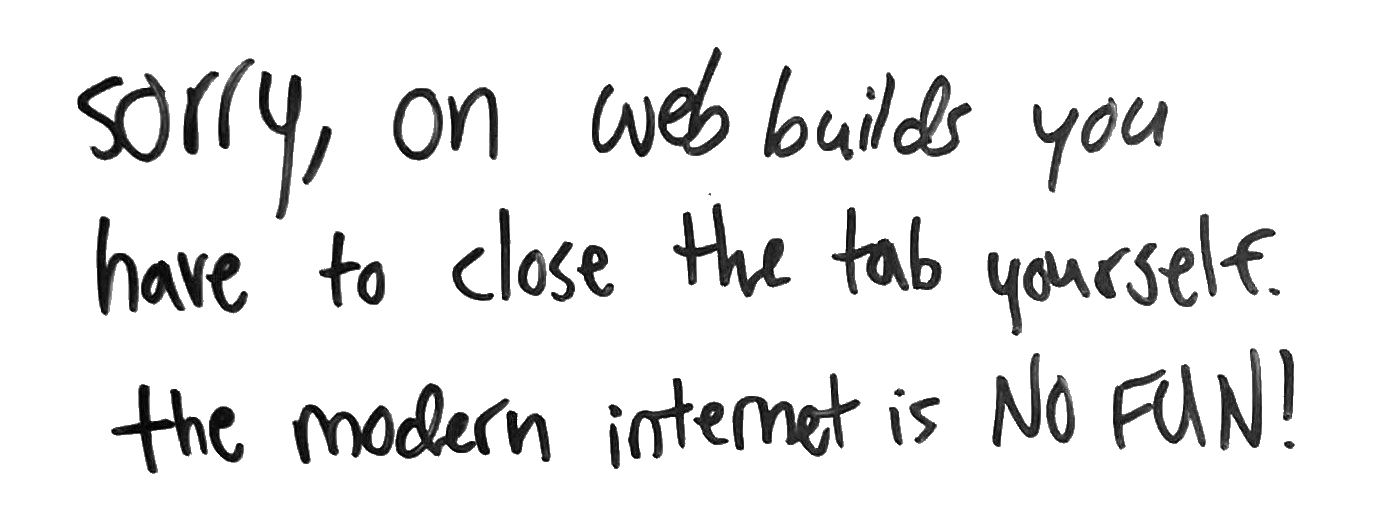 sorry, on web builds you
have to close the tab yourself.
the modern internet is NO FUN!